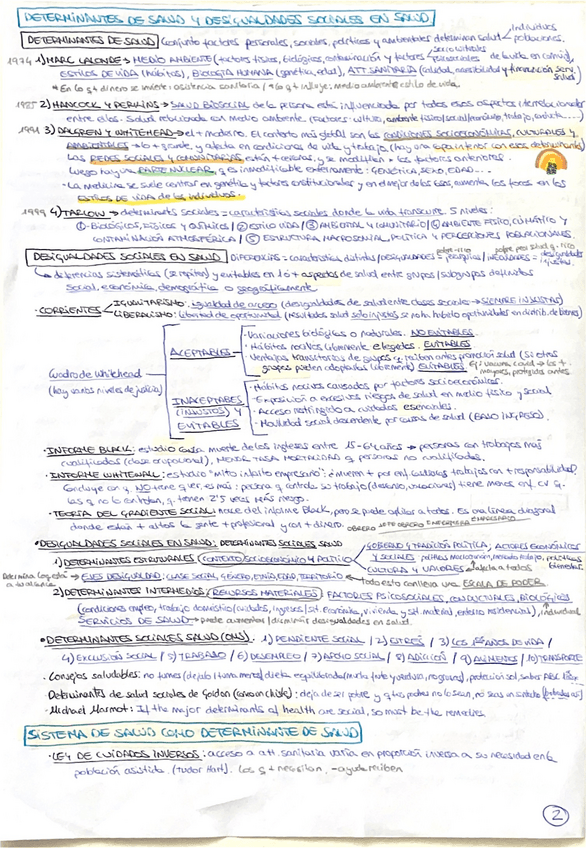 DETERMINANTES DE SALUD Y DESIGUALDADES SOCIALES EN SALUD
DETERMINANTES DE SALUD Conjunto factores personales, sociales, políticos y ambientales determinan salud individuos poblaciones.
1974 1) MARC LALONDE → MEDIO AMBIENTE (factores físicos, biológicos, contaminación y factores socioculturales
ESTILOS DE VIDA (hábitos), BIOLOGIA HUMANA (genética, edad), ATT SANITARIA (calidad, accesibilidad y financiación serv. salud
* En lo q + dinero se invierte: asistencia sanitaria / * lo q + influye: medio ambiente estilo de vida.
1985 2) HANCOCK Y PERKINS → SALUD BIOSOCIAL de la persona está influenciada por todos esos aspectos interrelacionados
entre ellos. Salud relacionada con medio ambiente (factores: cultura, ambiente físico/social/familiar, trabajo,
1991 3) DALGREN Y WHITEHEAD → el + moderno. El contexto más global son las CONDICIONES SOCIOECONÓMICAS, CULTURALES Y
AMBIENTALES → lo + grande, y afecta en condiciones de vida y trabajo (hay una capa interior con esos determinantes)
Las REDES SOCIALES Y COMUNITARIAS están + cercanas, y se modifican + los factores anteriores.
Luego hay una PARTE NUCLEAR, q es inmodificable externamente: GENÉTICA, SEXO, EDAD...
- La medicina se suele centrar en genética y factores constitucionales y en el mejor de los casos, aumenta los focos en los
ESTILOS DE VIDA de los individuos.
1999 4) TARLOV → determinants sociales = características sociales donde la vida transcurre. 5 niveles:
① BIOLÓGICOS, FÍSICOS Y QUÍMICOS / ② ESTILO VIDA / ③ AMBIENTAL Y COMUNITARIO / ④ AMBIENTE FÍSICO, CLIMÁTICO Y
CONTAMINACIÓN ATMOSFÉRICA / ⑤ ESTRUCTURA MACROSOCIAL, POLÍTICA Y PERCEPCIONES POBLACIONALES.
DESIGUALDADES SOCIALES EN SALUD Diferencias = características distintas / desigualdades = jerárquicas / inequidades = desigualdades injustas
→ diferencias sistemáticas (se repiten) y evitables en 1 ó + aspectos de salud entre grupos/subgrupos definidos
social, económica, demográfica o geográficamente
· CORRIENTES IGUALITARISMO: igualdad de acceso (desigualdades de salud entre clases sociales → SIEMPRE INJUSTAS)
LIBERALISMO: libertad de oportunidad (resultados salud solo injustos si no ha habido oportunidades en distrib. de bienes)
Cuadro de whitehead
(hay varios niveles de justicia)
ACEPTABLES
· Variaciones biológicas o naturales. NO EVITABLES.
· Hábitos nocivos libremente elegidos. EVITABLES
· Ventajas transitorias de grupos q reciban antes promoción salud (Si otros
grupos pueden adoptarlas libremente) EVITABLES Ej: vacuna covid → los +
mayores, protegidos antes
INACEPTABLES
(INJUSTOS) Y
EVITABLES
· Hábitos nocivos causados por factores socioeconómicos.
· Exposición a excesivos riesgos de salud en medio físico y social
· Acceso restringido a cuidados esenciales.
· Movilidad social descendente por causas de salud (BAJO INGRESO).
· INFORME BLACK: estudió causa muerte de los ingleses entre 15-64 años → personas con trabajos más
cualificados (clase ocupacional), MENOR TASA MORTALIDAD q personas no cualificadas.
· INFORME WHITEHALL: estudio "mito infarto empresario": ¿mueren + por enf. cardíacas trabajos con + responsabilidad?
Concluye con q NO tiene q ver, es más: persona q controla su trabajo (destino, vacaciones) tiene menos enf. CV q
las q no lo controlan, q tienen 2'5 veces MÁS riesgo.
· TEORIA DEL GRADIENTE SOCIAL: nace del informe Black, pero se puede aplicar a todos. Es una línea diagonal
donde están + altos la gente + profesional y con + dinero. OBRERO JEFE OBRERO EMPRESARIO
· DESIGUALDADES SOCIALES EN SALUD: DETERMINANTES SOCIALES SALUD
1) DETERMINANTES ESTRUCTURALES (CONTEXTO SOCIOECONÓMICO Y POLÍTICO) GOBIERNO Y TRADICIÓN POLÍTICA, ACTORES ECONÓMICOS
Y SOCIALES políticas macroeconom, mercado trabajo, políticas bienestar.
CULTURA Y VALORES → afecta a todos
→ EJES DESIGUALDAD: CLASE SOCIAL, GÉNERO, ETNIA, EDAD, TERRITORIO todo esto conlleva una ESCALA DE PODER
2) DETERMINANTES INTERMEDIOS (RECURSOS MATERIALES) FACTORES PSICOSOCIALES, CONDUCTUALES, BIOLÓGICOS
(condiciones empleo, trabajo doméstico/cuidados, ingresos/sit. económica, vivienda y sit. material, entorno residencial), individual
SERVICIOS DE SALUD → puede aumentar/disminuir desigualdades en salud.
· DETERMINANTES SOCIALES SALUD (OMS). 1) PENDIENTE SOCIAL / 2) ESTRÉS / 3) LOS 1os AÑOS DE VIDA /
4) EXCLUSIÓN SOCIAL / 5) TRABAJO / 6) DESEMPLEO / 7) APOYO SOCIAL / 8) ADICCIÓN / 9) ALIMENTOS / 10) TRANSPORTE
- Consejos saludables: no fumes (dejalo/fuma menos) dieta equilibrada (mucha fruta y verdura, no grasas), protección sol, saber ABC
- Determinants de salud sociales de Gordon : deja de ser pobre y q tus padres no lo sean, no seas un sintecho
- Michael Marmot: If the major determinants of health are social, so must be the remedies.
SISTEMA DE SALUD COMO DETERMINANTE DE SALUD
· LEY DE CUIDADOS INVERSOS: acceso a att. sanitaria varía en proporción inversa a su necesidad en la
población asistida. (tudor Hart). Los q + necesitan, - ayuda reciben
2